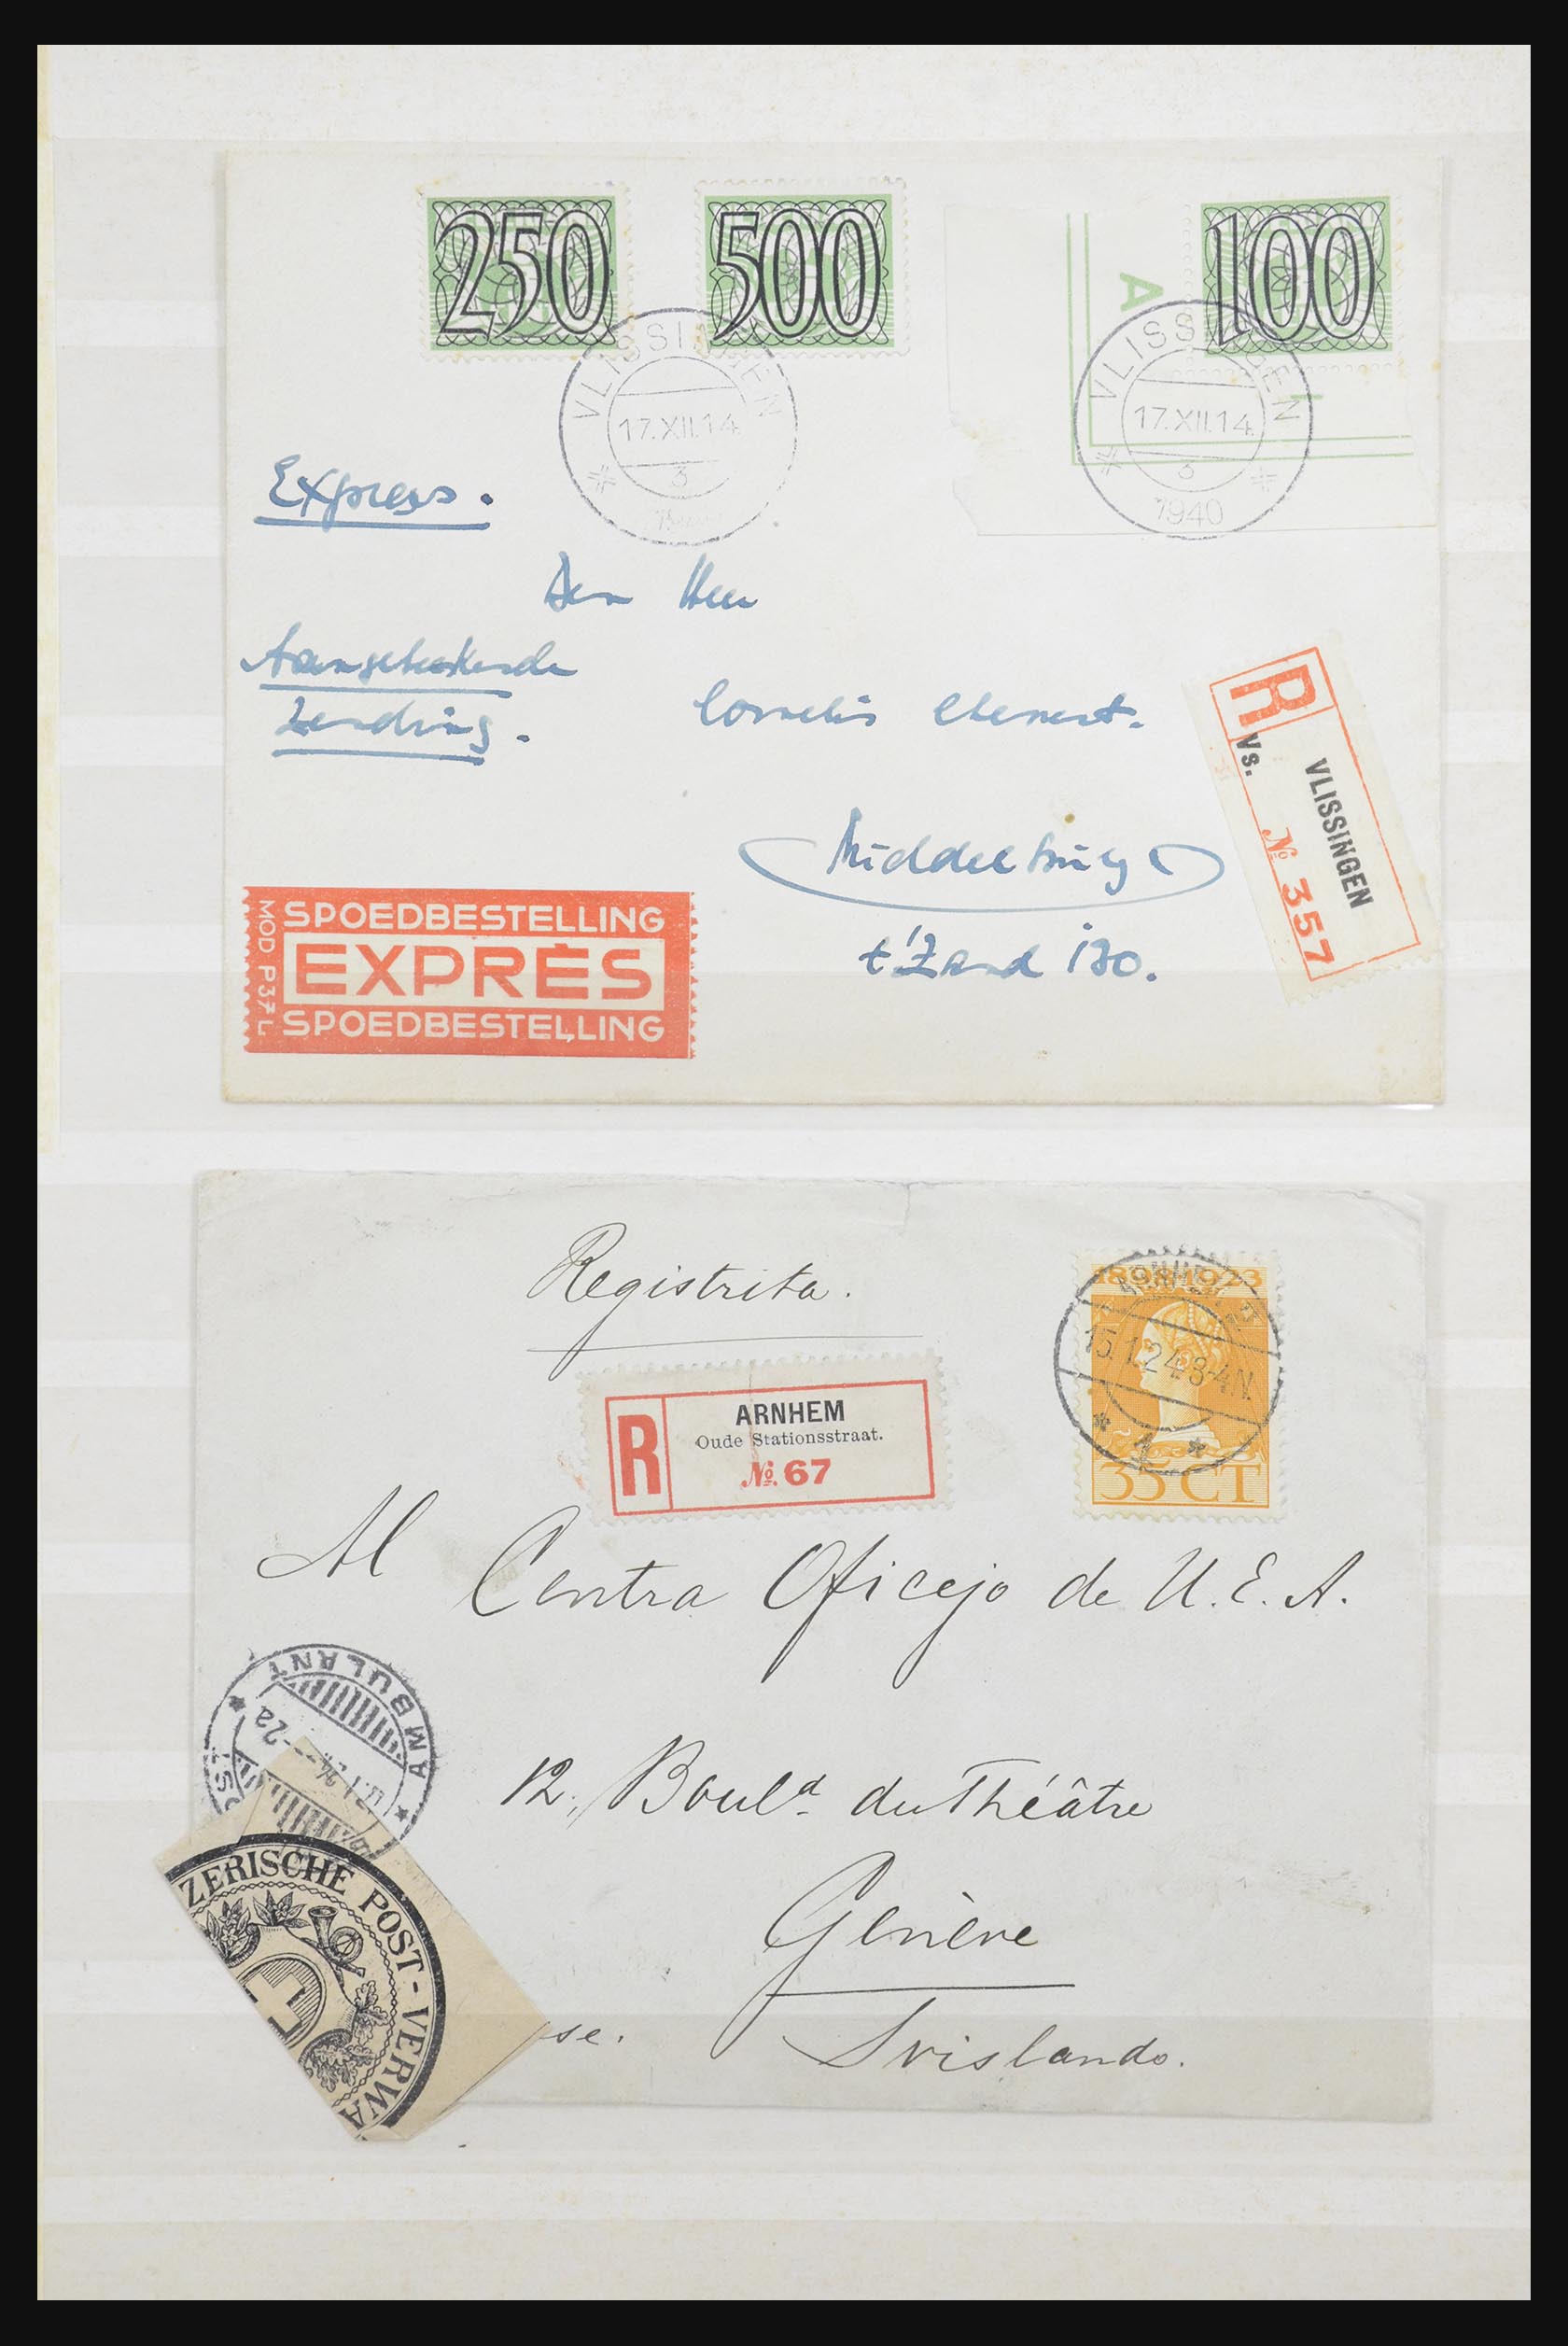 250
500
100
A
VLISSINGEN
17.XII.14
3
VLISSINGEN
17.XII.14
3
1940
Express.
Den Heer
Aangetekende
Zending.
Cornelis
Middelburg
t'Zand 130.
R
Vs.
VLISSINGEN
№ 357
MOD P37L
SPOEDBESTELLING
EXPRÈS
SPOEDBESTELLING
Registrita.
1898 1923
35 CT
15.1.24.3-4N.
R
ARNHEM
Oude Stationsstraat.
№ 67
Al Centra Oficejo de U.E.A.
AMBULANT
12, Bould. du Théâtre
Genève
se.
Svislando.
ZERISCHE POST-VERWA